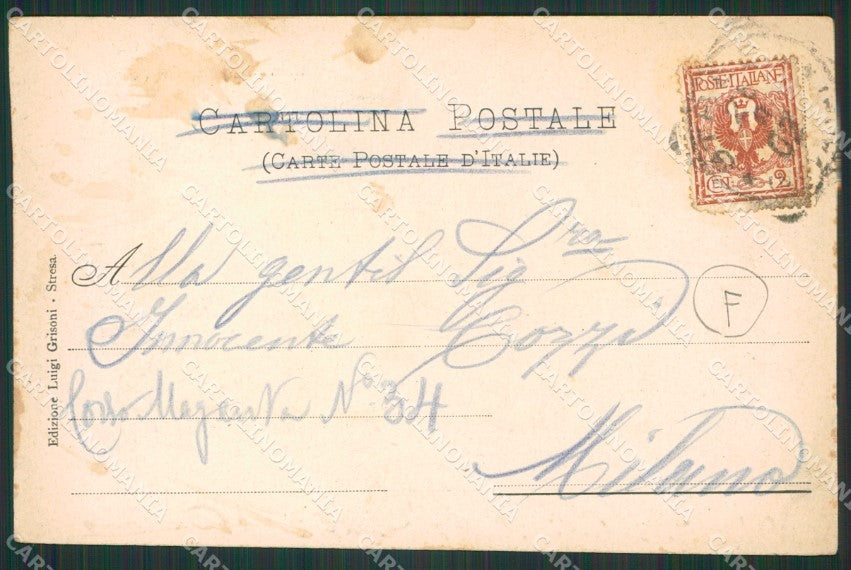 CARTOLINA POSTALE
(CARTE POSTALE D'ITALIE)
POSTE ITALIANE
EN 2
Alla gentil Sig.ra
Innocenta Cozzi
Corso Magenta No 34
Milano
F
Edizione Luigi Grisoni - Stresa.
CARTOLINOMANIA